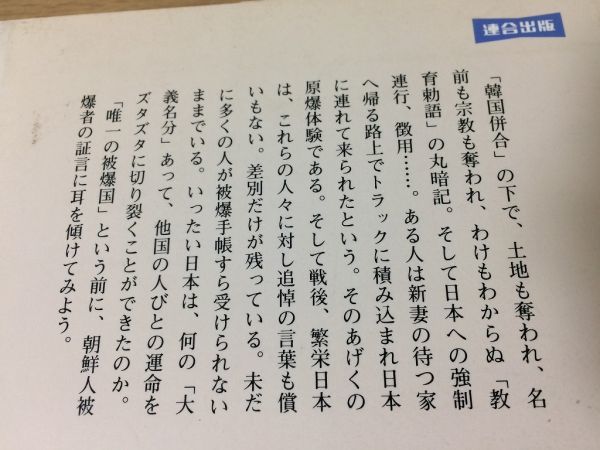 連合出版
「韓国併合」の下で、土地も奪われ、名
前も宗教も奪われ、わけもわからぬ「教
育勅語」の丸暗記。そして日本への強制
連行、徴用……。ある人は新妻の待つ家
へ帰る路上でトラックに積み込まれ日本
に連れて来られたという。そのあげくの
原爆体験である。そして戦後、繁栄日本
は、これらの人々に対し追悼の言葉も償
いもない。差別だけが残っている。未だ
に多くの人が被爆手帳すら受けられない
ままでいる。いったい日本は、何の「大
義名分」あって、他国の人びとの運命を
ズタズタに切り裂くことができたのか。
「唯一の被爆国」という前に、朝鮮人被
爆者の証言に耳を傾けてみよう。